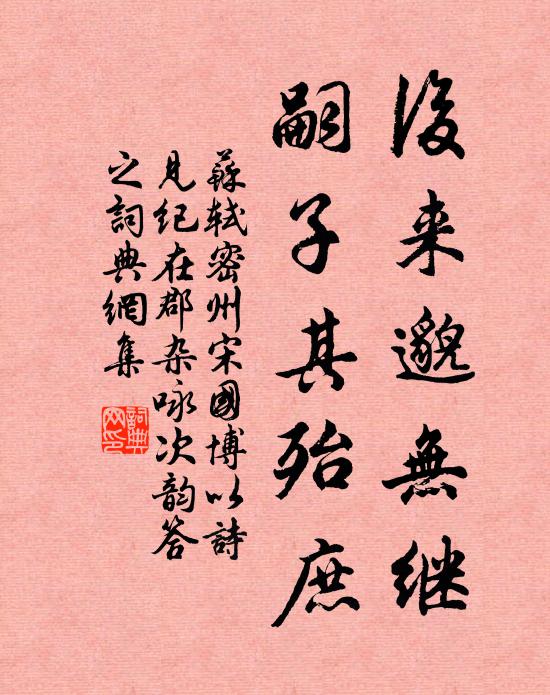 後来邈無継
嗣子其殆庶
蘇軾密州宋國博以詩
見纪在郡杂咏次韵答
之詞典網集
詞典
网印